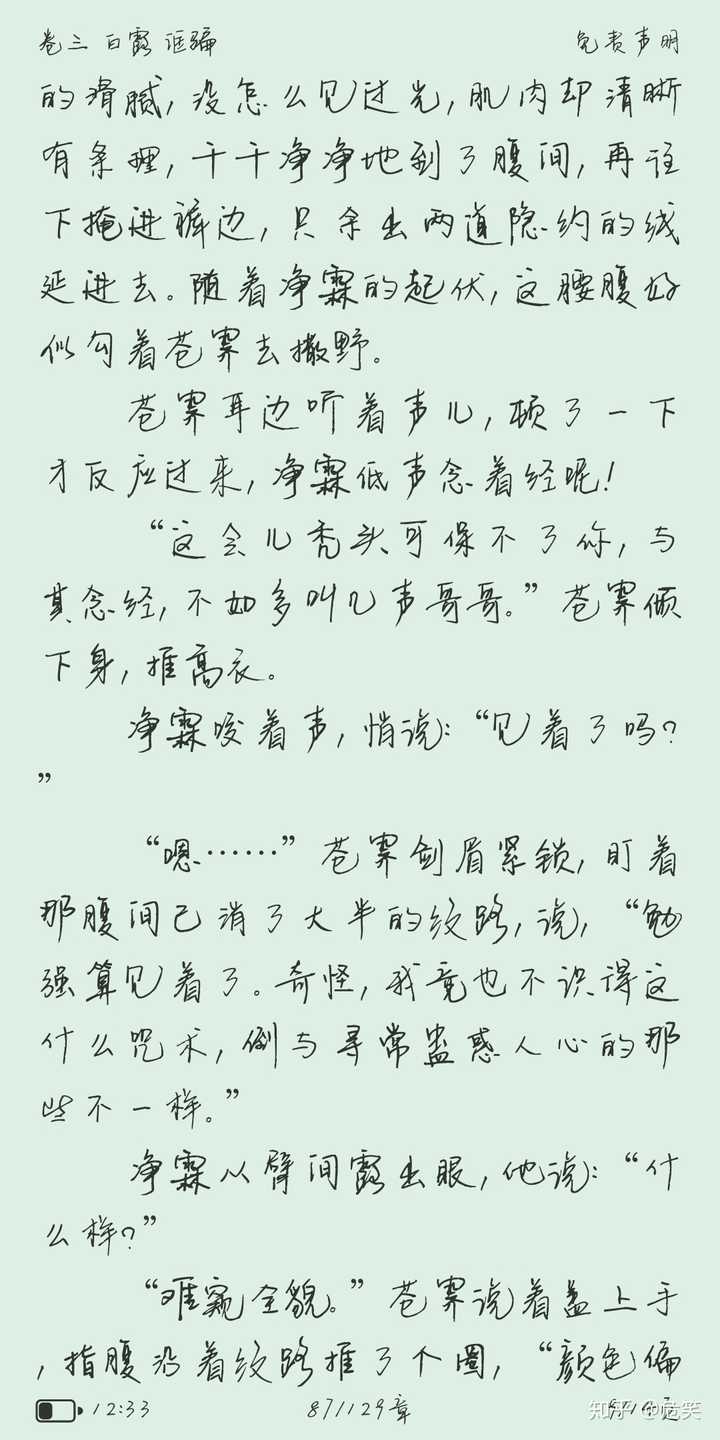 卷三 白露 诓骗 免责声明
的滑腻，没怎么见过光，肌肉却清晰
有条理，干干净净地到了腹间，再往
下掩进裤边，只余出两道隐约的线
延进去。随着净霖的起伏，这腰腹好
似勾着苍霁去撒野。
苍霁耳边听着声儿，顿了一下
才反应过来，净霖低声念着经呢！
“这会儿秃头可保不了你，与
其念经，不如多叫几声哥哥。”苍霁倾
下身，推高衣。
净霖咬着声，悄说：“见着了吗？
”
“嗯……”苍霁剑眉紧锁，盯着
那腹间已消了大半的纹路，说，“勉
强算见着了。奇怪，我竟也不识得这
什么咒术，倒与寻常蛊惑人心的那
些不一样。”
净霖从臂间露出眼，他说：“什
么样？”
“难窥全貌。”苍霁说着盖上手
，指腹沿着纹路推了个圈，“颜色偏
12:33 87/129章
知乎 @危笑